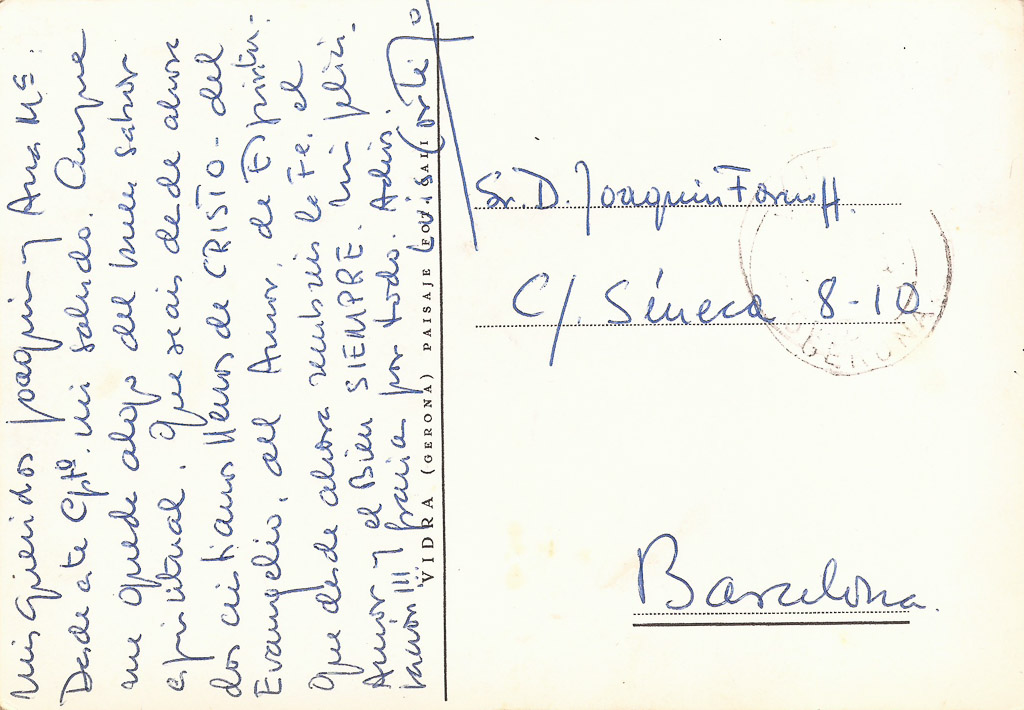 Mis queridos Joaquin y Ana Mª:
Desde este Cptº mi saludo. Aunque
me quede algo del buen sabor
espiritual. Que seais desde ahora
dos cristianos llenos de CRISTO - del
Evangelio, del Amor, de Espiritu.
Que desde ahora sembreis la Fe, el
Amor y el Bien SIEMPRE. Mi felici-
tación!!! y gracias por todo. Adios.
Luis
VIDRA (GERONA) PAISAJE
Sr. D. Joaquin
C/. Séneca 8-10
Barcelona.
GERONA